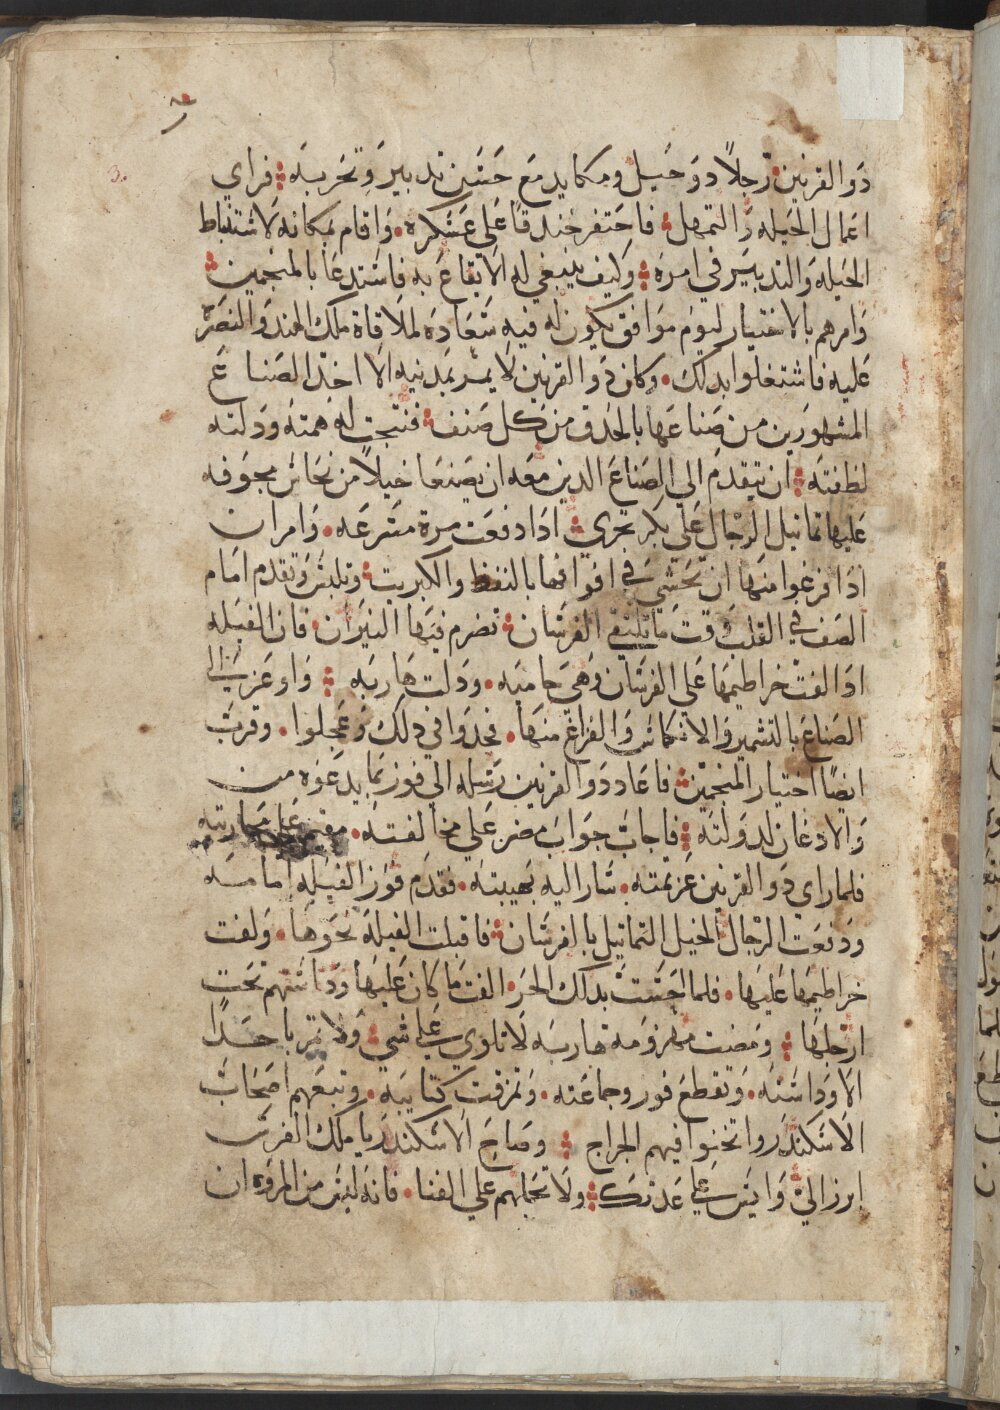 ذو القرنين رجلاً ذو حيل ومكايد مع حسن تدبير وتجربه فراي
اعمال الحيله والتمهل فاحتفر خندقاً على عسكره واقام بمكانه لاستنباط
الحيله والتدبير في امره وكيف ينبغي له الايقاع به فاستدعا بالمنجمين
وامرهم بالاختيار ليوم موافق يكون له فيه سعاده لملاقاة ملك الهند والنصره
عليه فاشتغلوا بدلك وكان دو القرنين لا يمر بمدينه الا اخد الصناع
المشهورين من صناعها بالحدق من كل صنف فنتجت له همته ودلته
لظفنته ان يتقدم الي الصناع الدين معه ان يصنعا خيلاً من نحاس مجوفه
عليها تماتيل الرجال على بكر تجري ادا دفعت مرة مسرعه وامر ان
ادا فرغوا منها ان تحشى في اجوافها بالنفط والكبريت وتلبس وتقدم امام
الصف في القلب وقت ما يلتقي الفرسان تضرم فيها النيران فان الفيله
ادا لفت خراطيمها على الفرسان وهي حاميه ودلت هاربه واوعز الي
الصناع بالتشمير والانكماش والفراغ منها فجدوا في دلك وعجلوا وقرب
ايضاً اختيار المنجمين فاعاد دو القرنين رسله الي فوز بما يدعوه من
والادعان لدولته فاجاب جواب مصر على مخالفته مقيم على محاربته
فلما راي دو القرنين عزيمته سار اليه بهيبته فقدم فوز الفيله امامه
ودفعت الرجال الخيل التماتيل بالفرسان فاقبلت الفيلة نحوها ولفت
خراطيمها عليها فلما احست بدلك الحر القت ما كان عليها وداستهم تحت
ارجلها ومضت مهزومة هاربه لا تلوي على شي ولا تمر باحدًا
الا وداسته وتقطع فور وجماعته وتمزقت كتايبه وتبعهم اصحاب
الاسكندر واتخنوا فيهم الجراح وصاح الاسكندر يا ملك الفرس
ابرز الي وابس على عدتك ولا تحملهم على الفنا فانه ليس من المروه ان